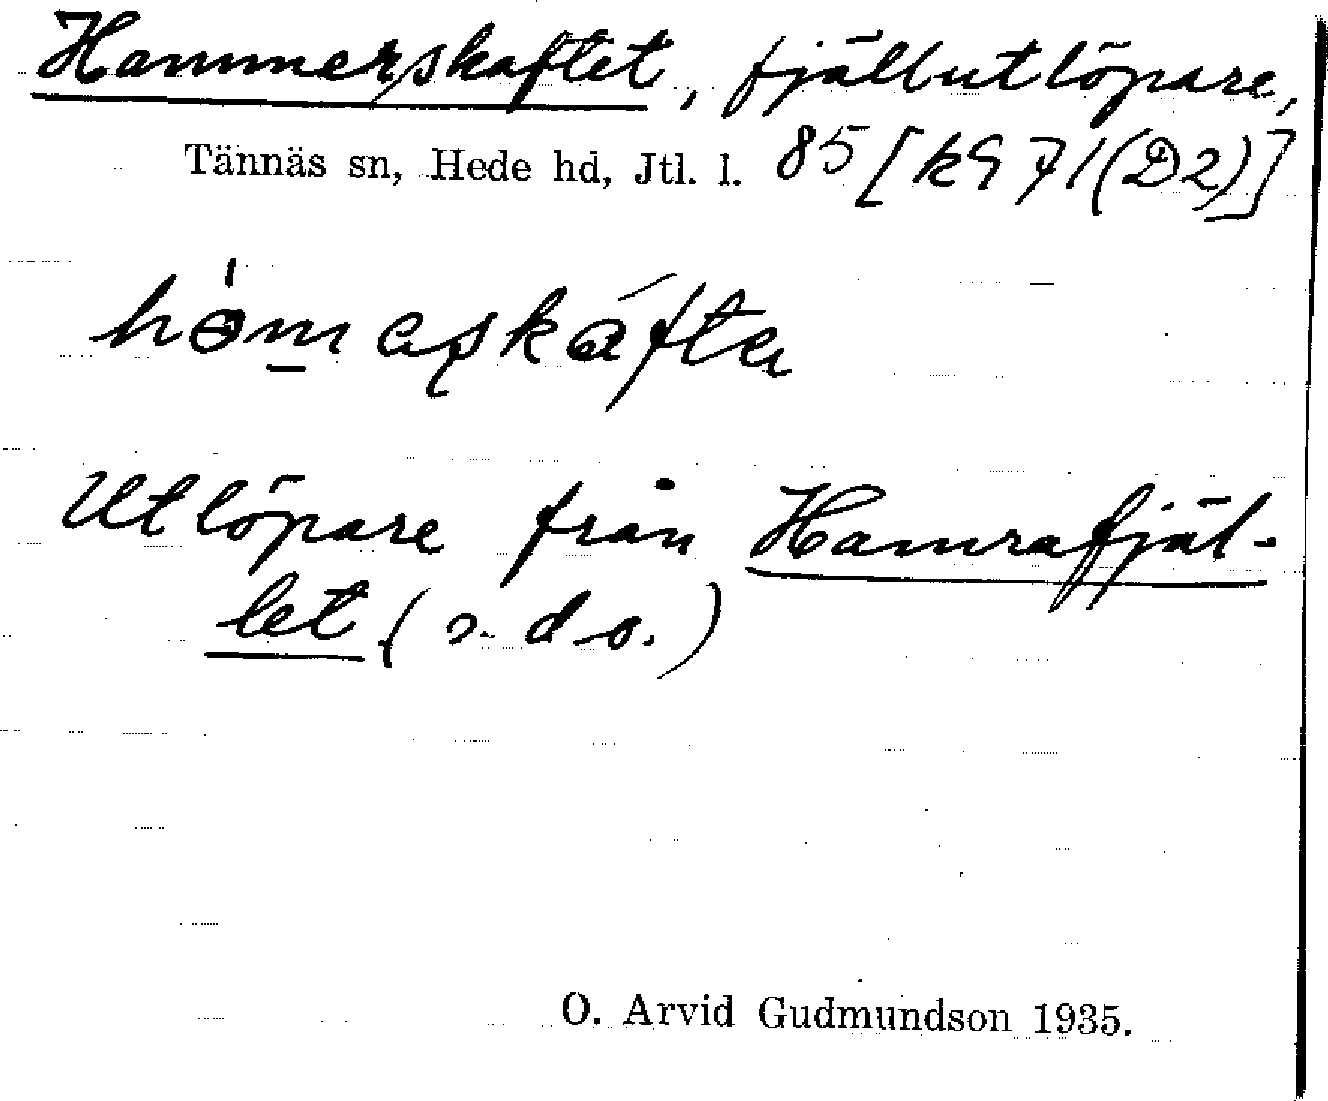 Hammerskaftet, fjällutlöpare,
Tännäs sn, Hede hd, Jtl. l. 85 [k971(D2)]
Utlöpare från Hamrafjäl-
let (s. d. o.)
O. Arvid Gudmundson 1935.